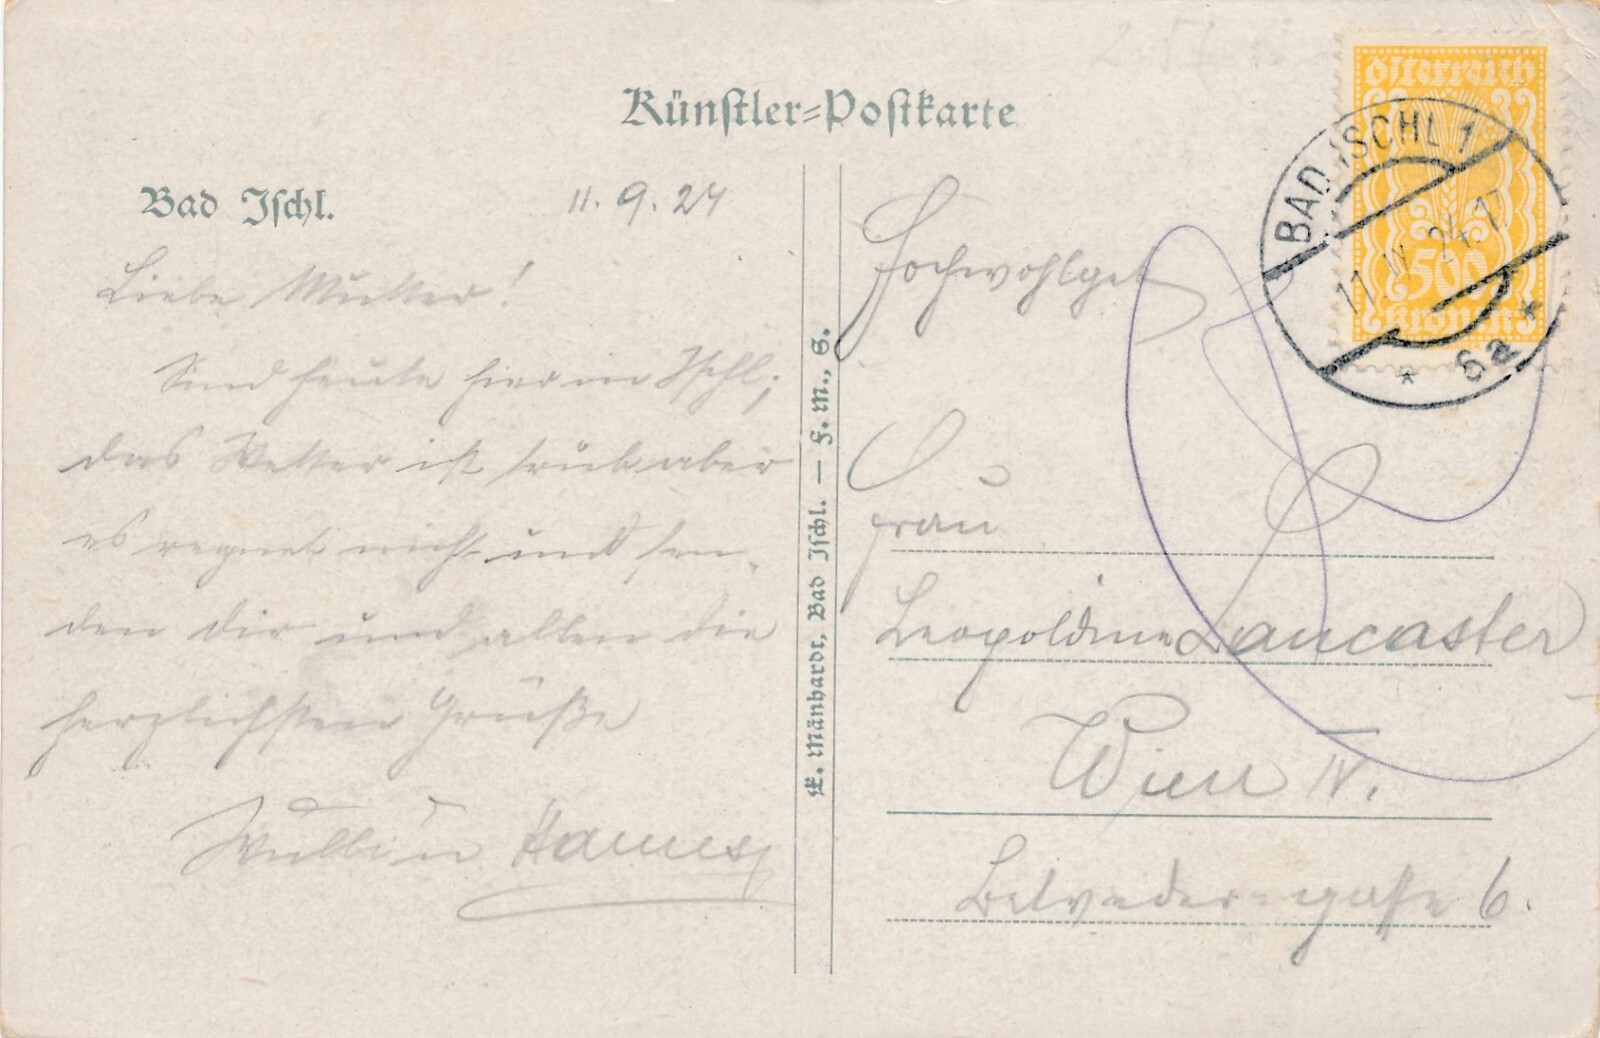 Künstler=Postkarte
Bad Ischl.
11. 9. 24
Liebe Mutter!
Sind heute hier in Ischl;
das Wetter ist trüb aber
es regnet nicht und sen-
den dir und allen die
herzlichsten Grüße
Hannes
E. Mänhardt, Bad Ischl. — F. M., S.
österreich
500
kronen
BAD ISCHL 1
11. IX 24. 17
* 6a *
Hochwohlgeb
Frau
Leopoldine Lancaster
Wien IV.
Belvedere=gasse 6.